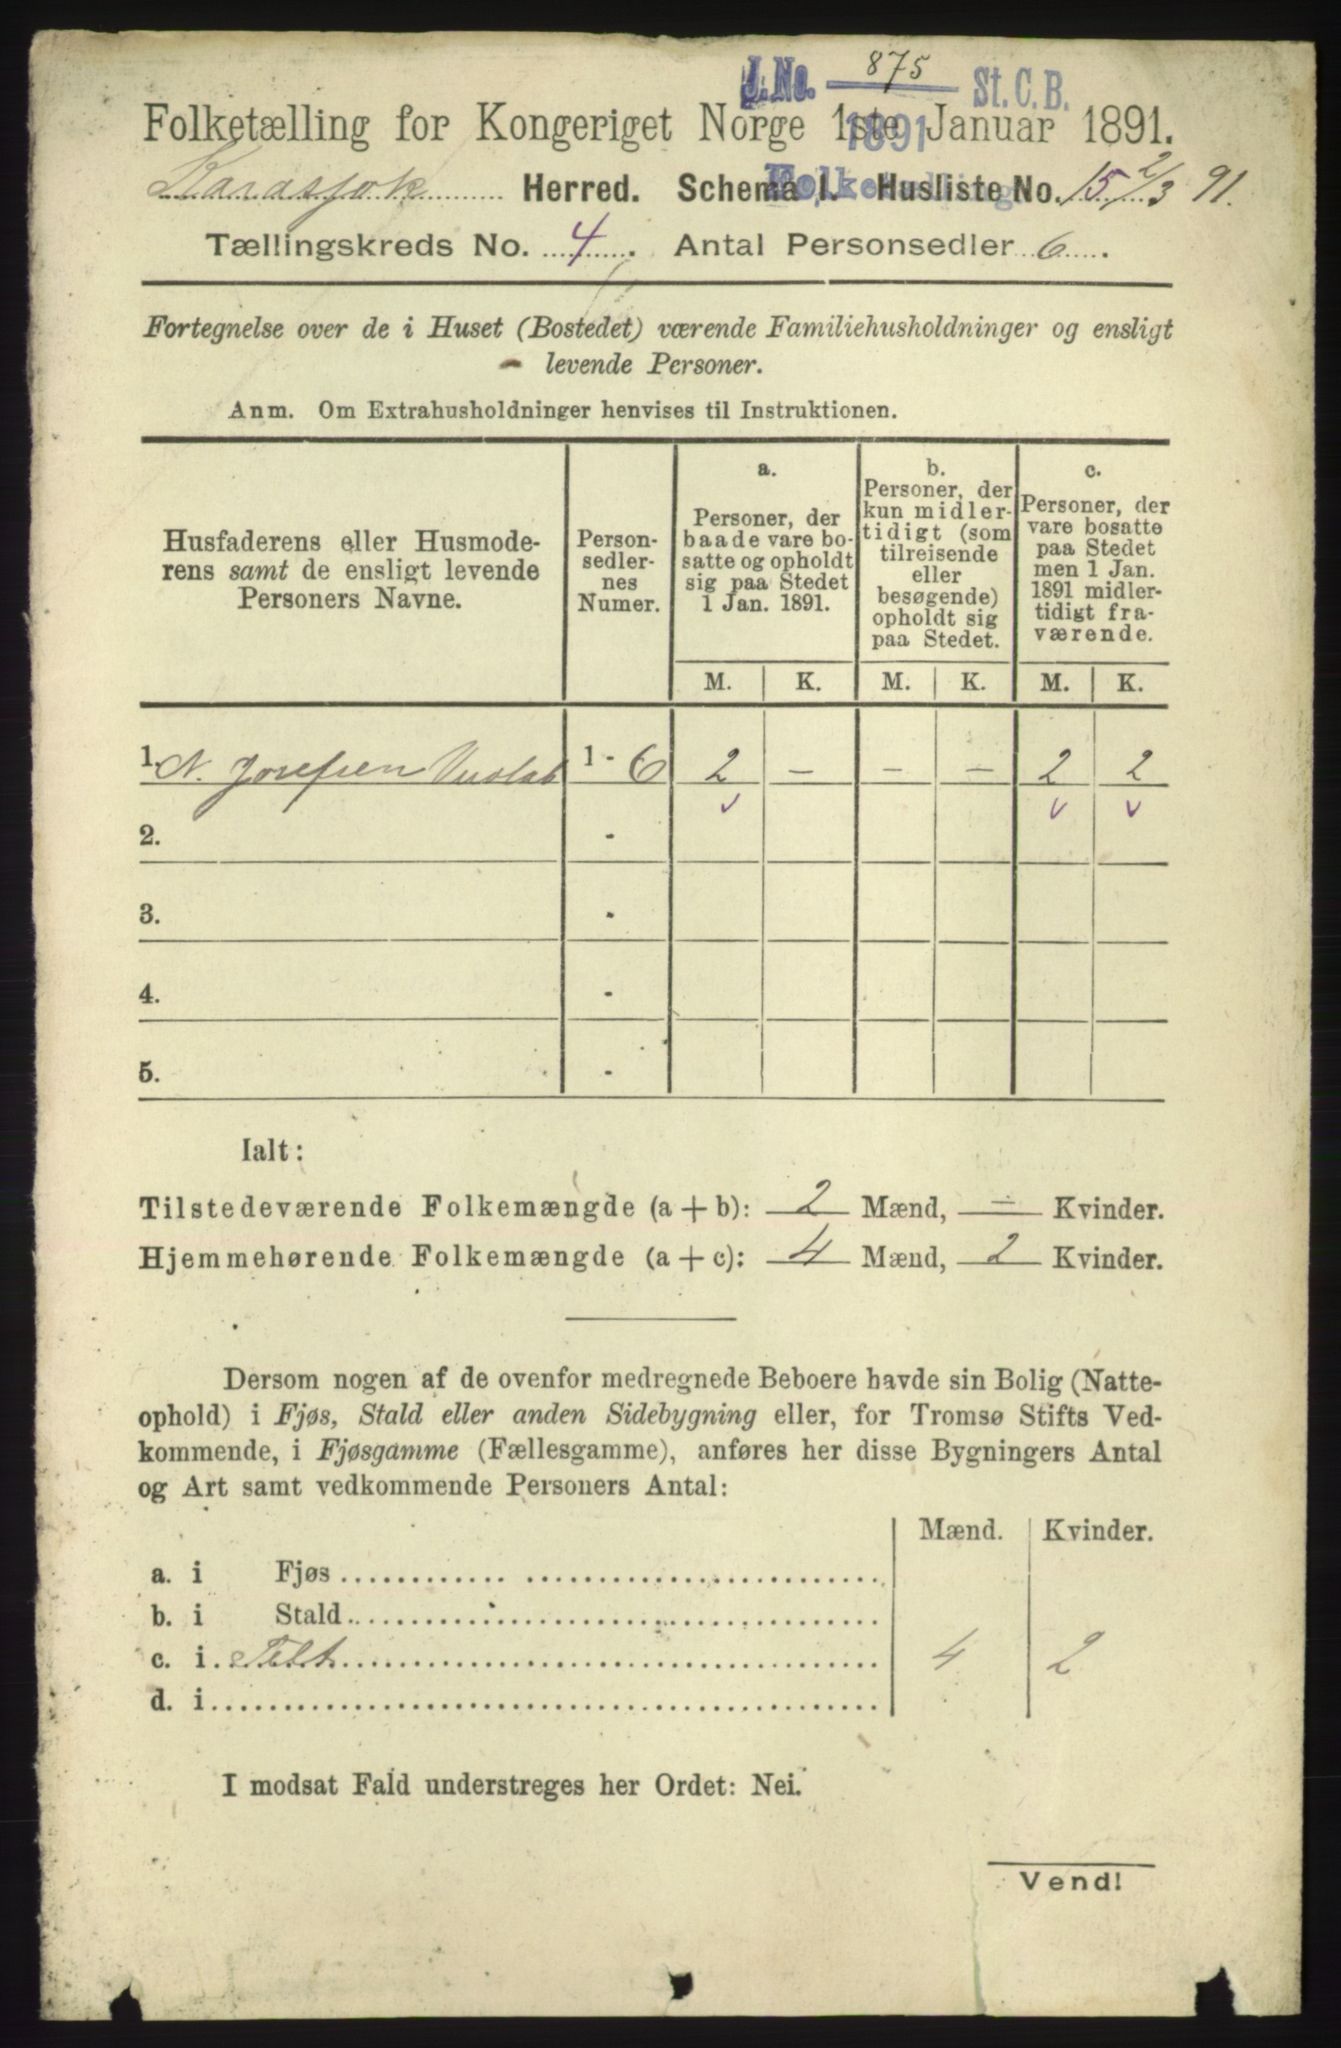 J.No. 875 St.C.B.
Folketælling for Kongeriget Norge 1ste Januar 1891.
1891
Karasjok Herred. Schema I. Husliste No. 15 2/3 91.
Folketælling
Tællingskreds No. 4. Antal Personsedler 6.
Fortegnelse over de i Huset (Bostedet) værende Familiehusholdninger og ensligt
levende Personer.
Anm. Om Extrahusholdninger henvises til Instruktionen.
Husfaderens eller Husmode-
rens samt de ensligt levende
Personers Navne.
Person-
sedler-
nes
Numer.
a.
Personer, der
baade vare bo-
satte og opholdt
sig paa Stedet
1 Jan. 1891.
b.
Personer, der
kun midler-
tidigt (som
tilreisende
eller
besøgende)
opholdt sig
paa Stedet.
c.
Personer, der
vare bosatte
paa Stedet
men 1 Jan.
1891 midler-
tidigt fra-
værende.
M. K. M. K. M. K.
1. N. Josefsen 1 - 6 2 – – – 2 2
2. -
3. -
4. -
5. -
Ialt:
Tilstedeværende Folkemængde (a + b): 2 Mænd, – Kvinder.
Hjemmehørende Folkemængde (a + c): 4 Mænd, 2 Kvinder.
Dersom nogen af de ovenfor medregnede Beboere havde sin Bolig (Natte-
ophold) i Fjøs, Stald eller anden Sidebygning eller, for Tromsø Stifts Ved-
kommende, i Fjøsgamme (Fællesgamme), anføres her disse Bygningers Antal
og Art samt vedkommende Personers Antal:
Mænd. Kvinder.
a. i Fjøs
b. i Stald
c. i Telt 4 2
d. i
I modsat Fald understreges her Ordet: Nei.
Vend!